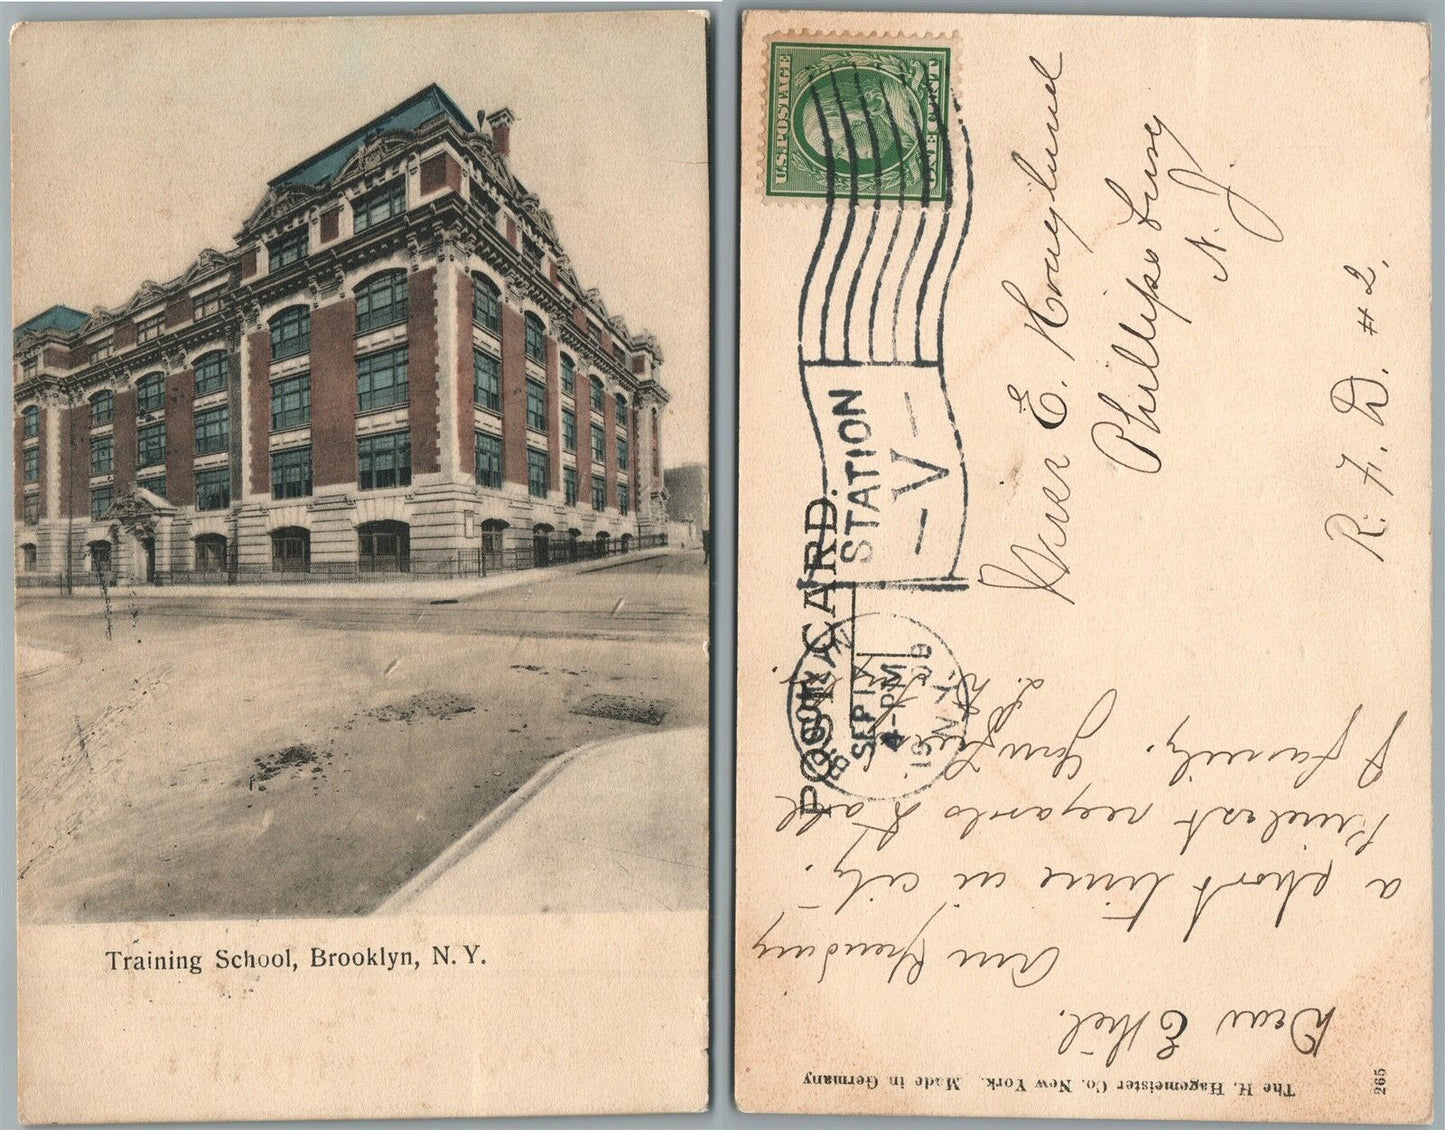 Training School, Brooklyn, N. Y.
U.S. POSTAGE
ONE CENT
POST CARD.
STATION
— V —
BROOKLYN
SEP 17
4-PM
1909
N.Y.
Miss E.
Phillipsburg
N. J.
R. F. D. #2.
Dear Ethel.
Am spending
a short time in city.
Kindest regards to all
family.
The H. Hagemeister Co. New York. Made in Germany
265